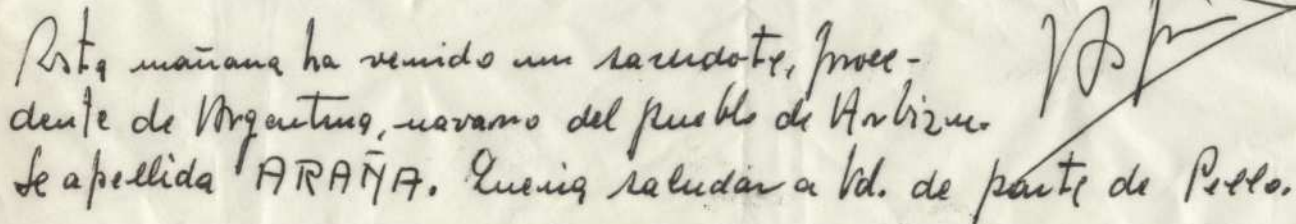 Esta mañana ha venido un sacerdote, proce-
dente de Argentina, navarro del pueblo de Arbizu.
Se apellida ARAÑA. Quería saludar a Vd. de parte de Pello.